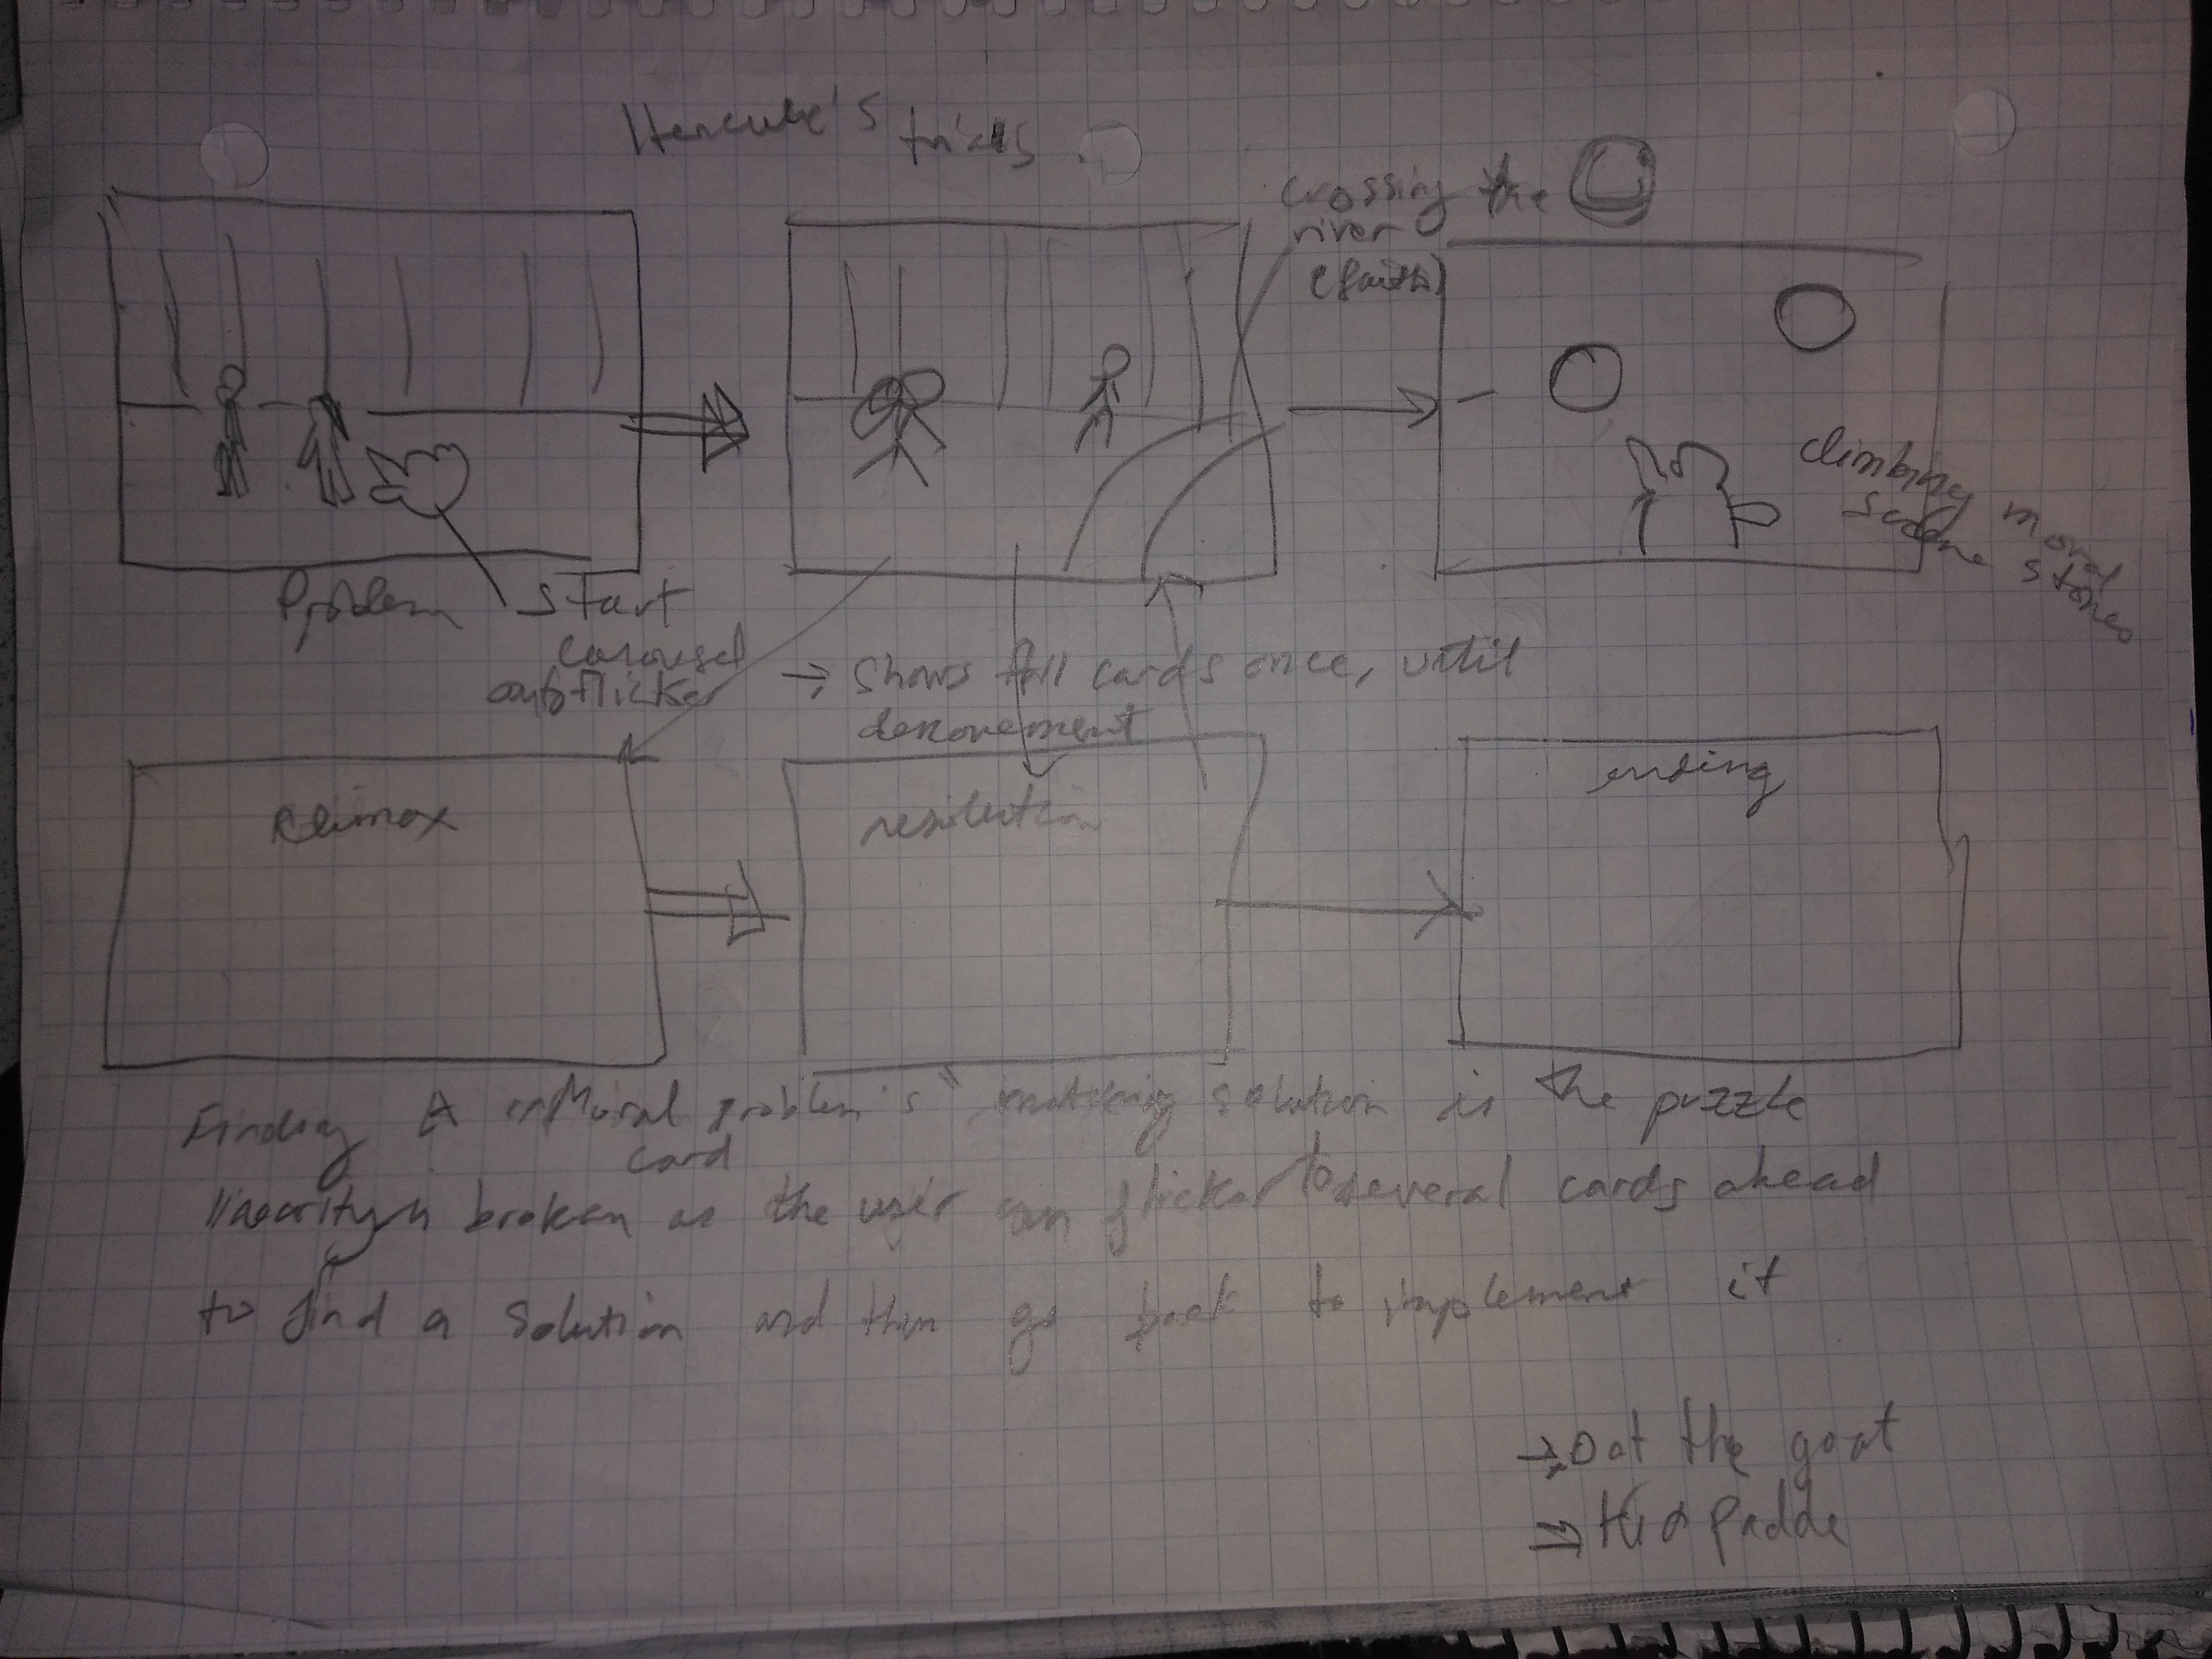 Hercule's trials
crossing the
river
(faith)
climbing
scene
moral
stones
Problem
start
carousel
flicker
→ shows all cards once, until
denouement
climax
resolution
ending
Finding A moral problem's matching solution is the puzzle
card
linearity is broken as the user can flicker to several cards ahead
to find a solution and then go back to implement it
→ Oat the goat